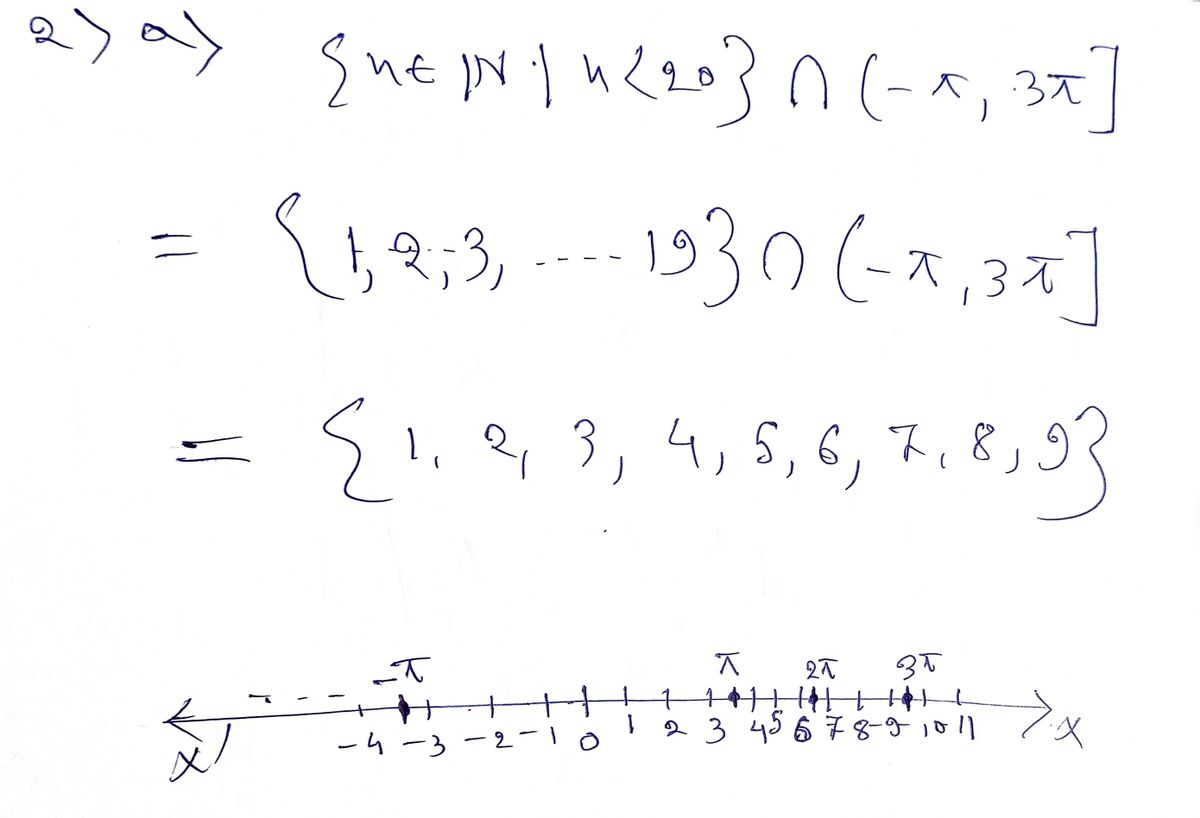 2> a> {n ∈ ℕ | n < 20} ∩ (-π, 3π]
= {1, 2, 3, ---- 19} ∩ (-π, 3π]
= {1, 2, 3, 4, 5, 6, 7, 8, 9}
-π π 2π 3π
-4 -3 -2 -1 0 1 2 3 4 5 6 7 8 9 10 11
x' x